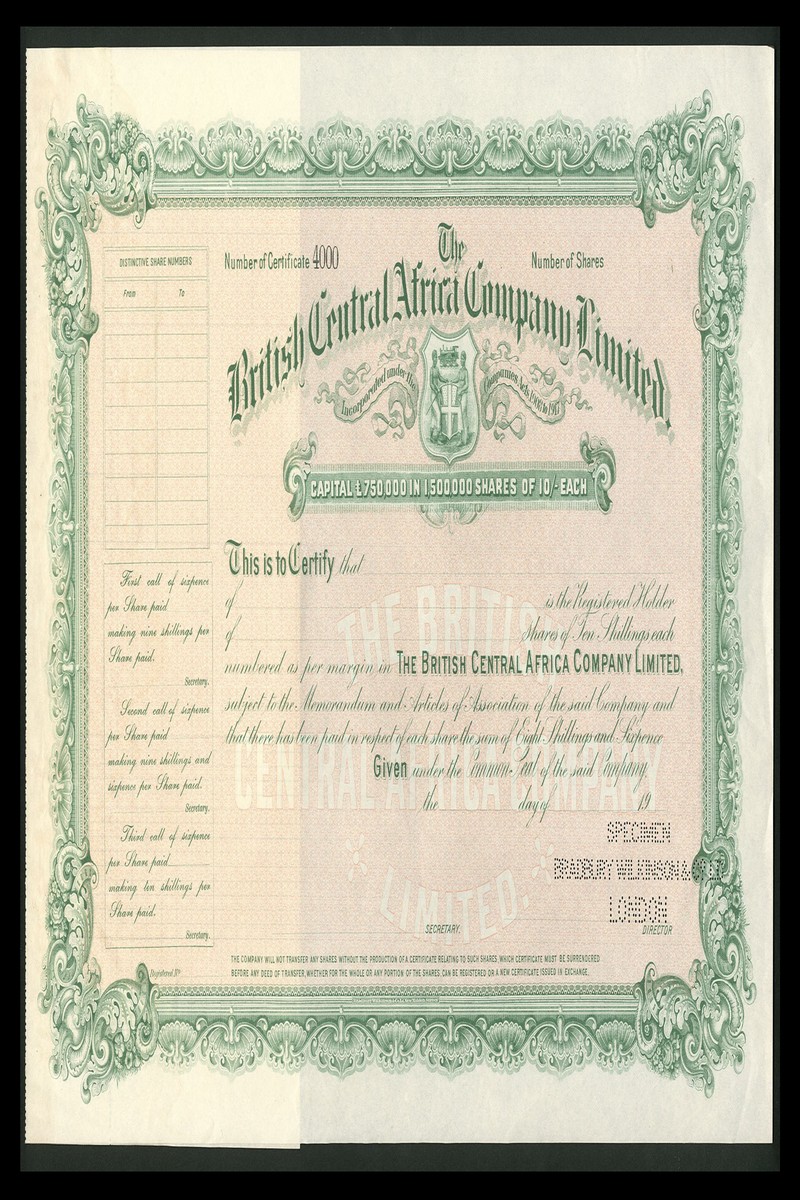 DISTINCTIVE SHARE NUMBERS
From To
Number of Certificate 4000
Number of Shares
The
British Central Africa Company Limited.
Incorporated under the Companies Acts, 1908 to 1917
CAPITAL £750,000 IN 1,500,000 SHARES OF 10/- EACH
This is to Certify that
of is the Registered Holder
of Shares of Ten Shillings each
numbered as per margin in THE BRITISH CENTRAL AFRICA COMPANY LIMITED,
subject to the Memorandum and Articles of Association of the said Company and
that there has been paid in respect of each share the sum of Eight Shillings and Sixpence
Given under the Common Seal of the said Company
the day of 19
THE BRITISH
CENTRAL AFRICA COMPANY
LIMITED.
First call of sixpence
per Share paid
making nine shillings per
Share paid.
Secretary.
Second call of sixpence
per Share paid
making nine shillings and
sixpence per Share paid.
Secretary.
Third call of sixpence
per Share paid
making ten shillings per
Share paid.
Secretary.
SPECIMEN
BRADBURY WILKINSON & CO LD
LONDON
SECRETARY.
DIRECTOR
Registered No
THE COMPANY WILL NOT TRANSFER ANY SHARES WITHOUT THE PRODUCTION OF A CERTIFICATE RELATING TO SUCH SHARES, WHICH CERTIFICATE MUST BE SURRENDERED
BEFORE ANY DEED OF TRANSFER, WHETHER FOR THE WHOLE OR ANY PORTION OF THE SHARES, CAN BE REGISTERED OR A NEW CERTIFICATE ISSUED IN EXCHANGE.